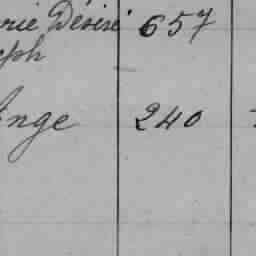 rie Désiré 657
eph
Ange 240